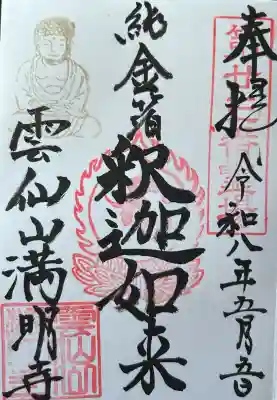 奉拝 令和八年五月五日
純金箔
釈迦如来
雲仙山満明寺